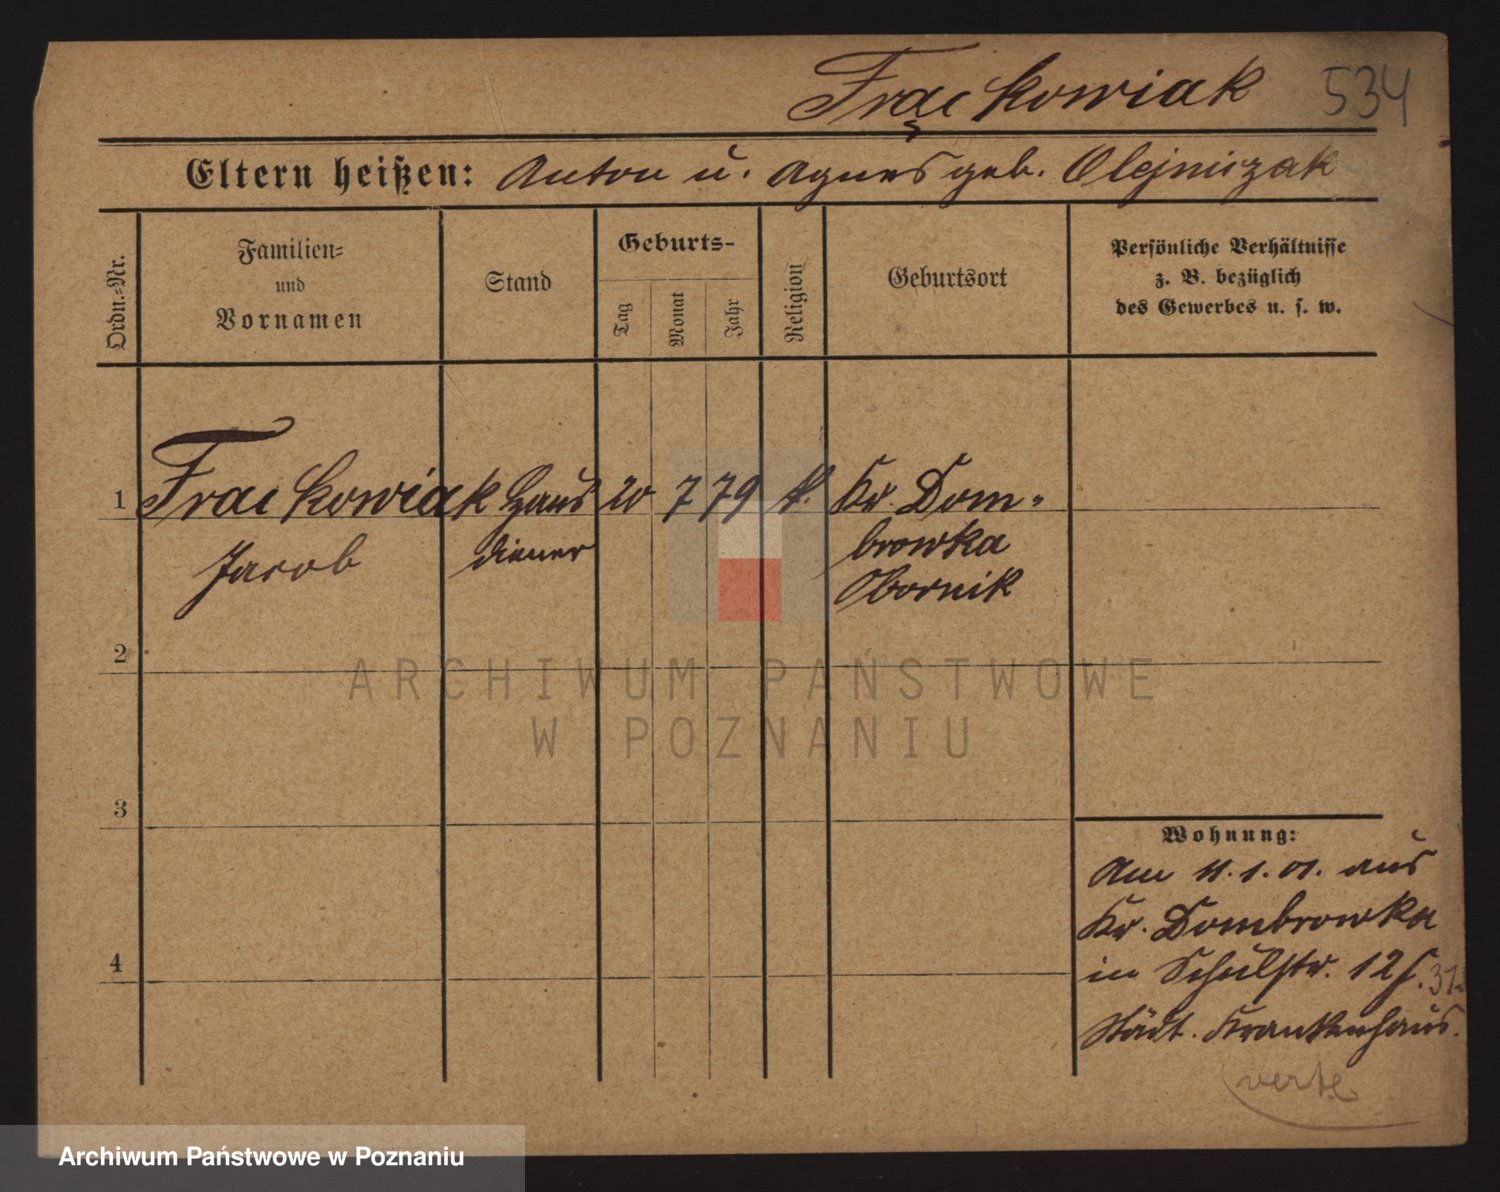 Frąckowiak 534
Eltern heißen: Anton u. Agnes geb. Olejniczak
Ordn.-Nr.
Familien-
und
Vornamen
Stand
Geburts-
Tag
Monat
Jahr
Religion
Geburtsort
Persönliche Verhältnisse
z. B. bezüglich
des Gewerbes u. s. w.
1 Frackowiak Haus 20 7 79 k. Kr. Dom-
Jacob diener browka
Obornik
2
ARCHIWUM PAŃSTWOWE
W POZNANIU
3
Wohnung:
Am 11.1.01. aus
Kr. Dombrowka
4 in Schulstr. 12
Städt. Krankenhaus.
verte
Archiwum Państwowe w Poznaniu